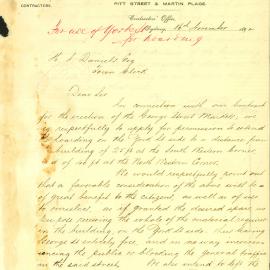 CONTRACTORS.
PITT STREET & MARTIN PLACE.
Contractors' Office,
For use of York St
for hoarding
Sydney, 16th November 189
H. J. Daniels Esq
Town Clerk
Dear Sir
In connection with our contract
for the erection of the George Street Markets, we
respectfully apply for permission to extend
hoarding on the York St side to a distance from
building of 25 ft at the South Western Corner
of 40 ft at the North Western Corner.
We would respectfully point out
that a favorable consideration of the above will be a
of great benefit to the citizens, as well as of use
to ourselves, as if granted the desired space, we
purpose receiving the whole of the material required
in the building, on the York St side, thus leaving
George St entirely free, and in no way inconven-
iencing the public or blocking the general traffic
in the said street. We also intend to left